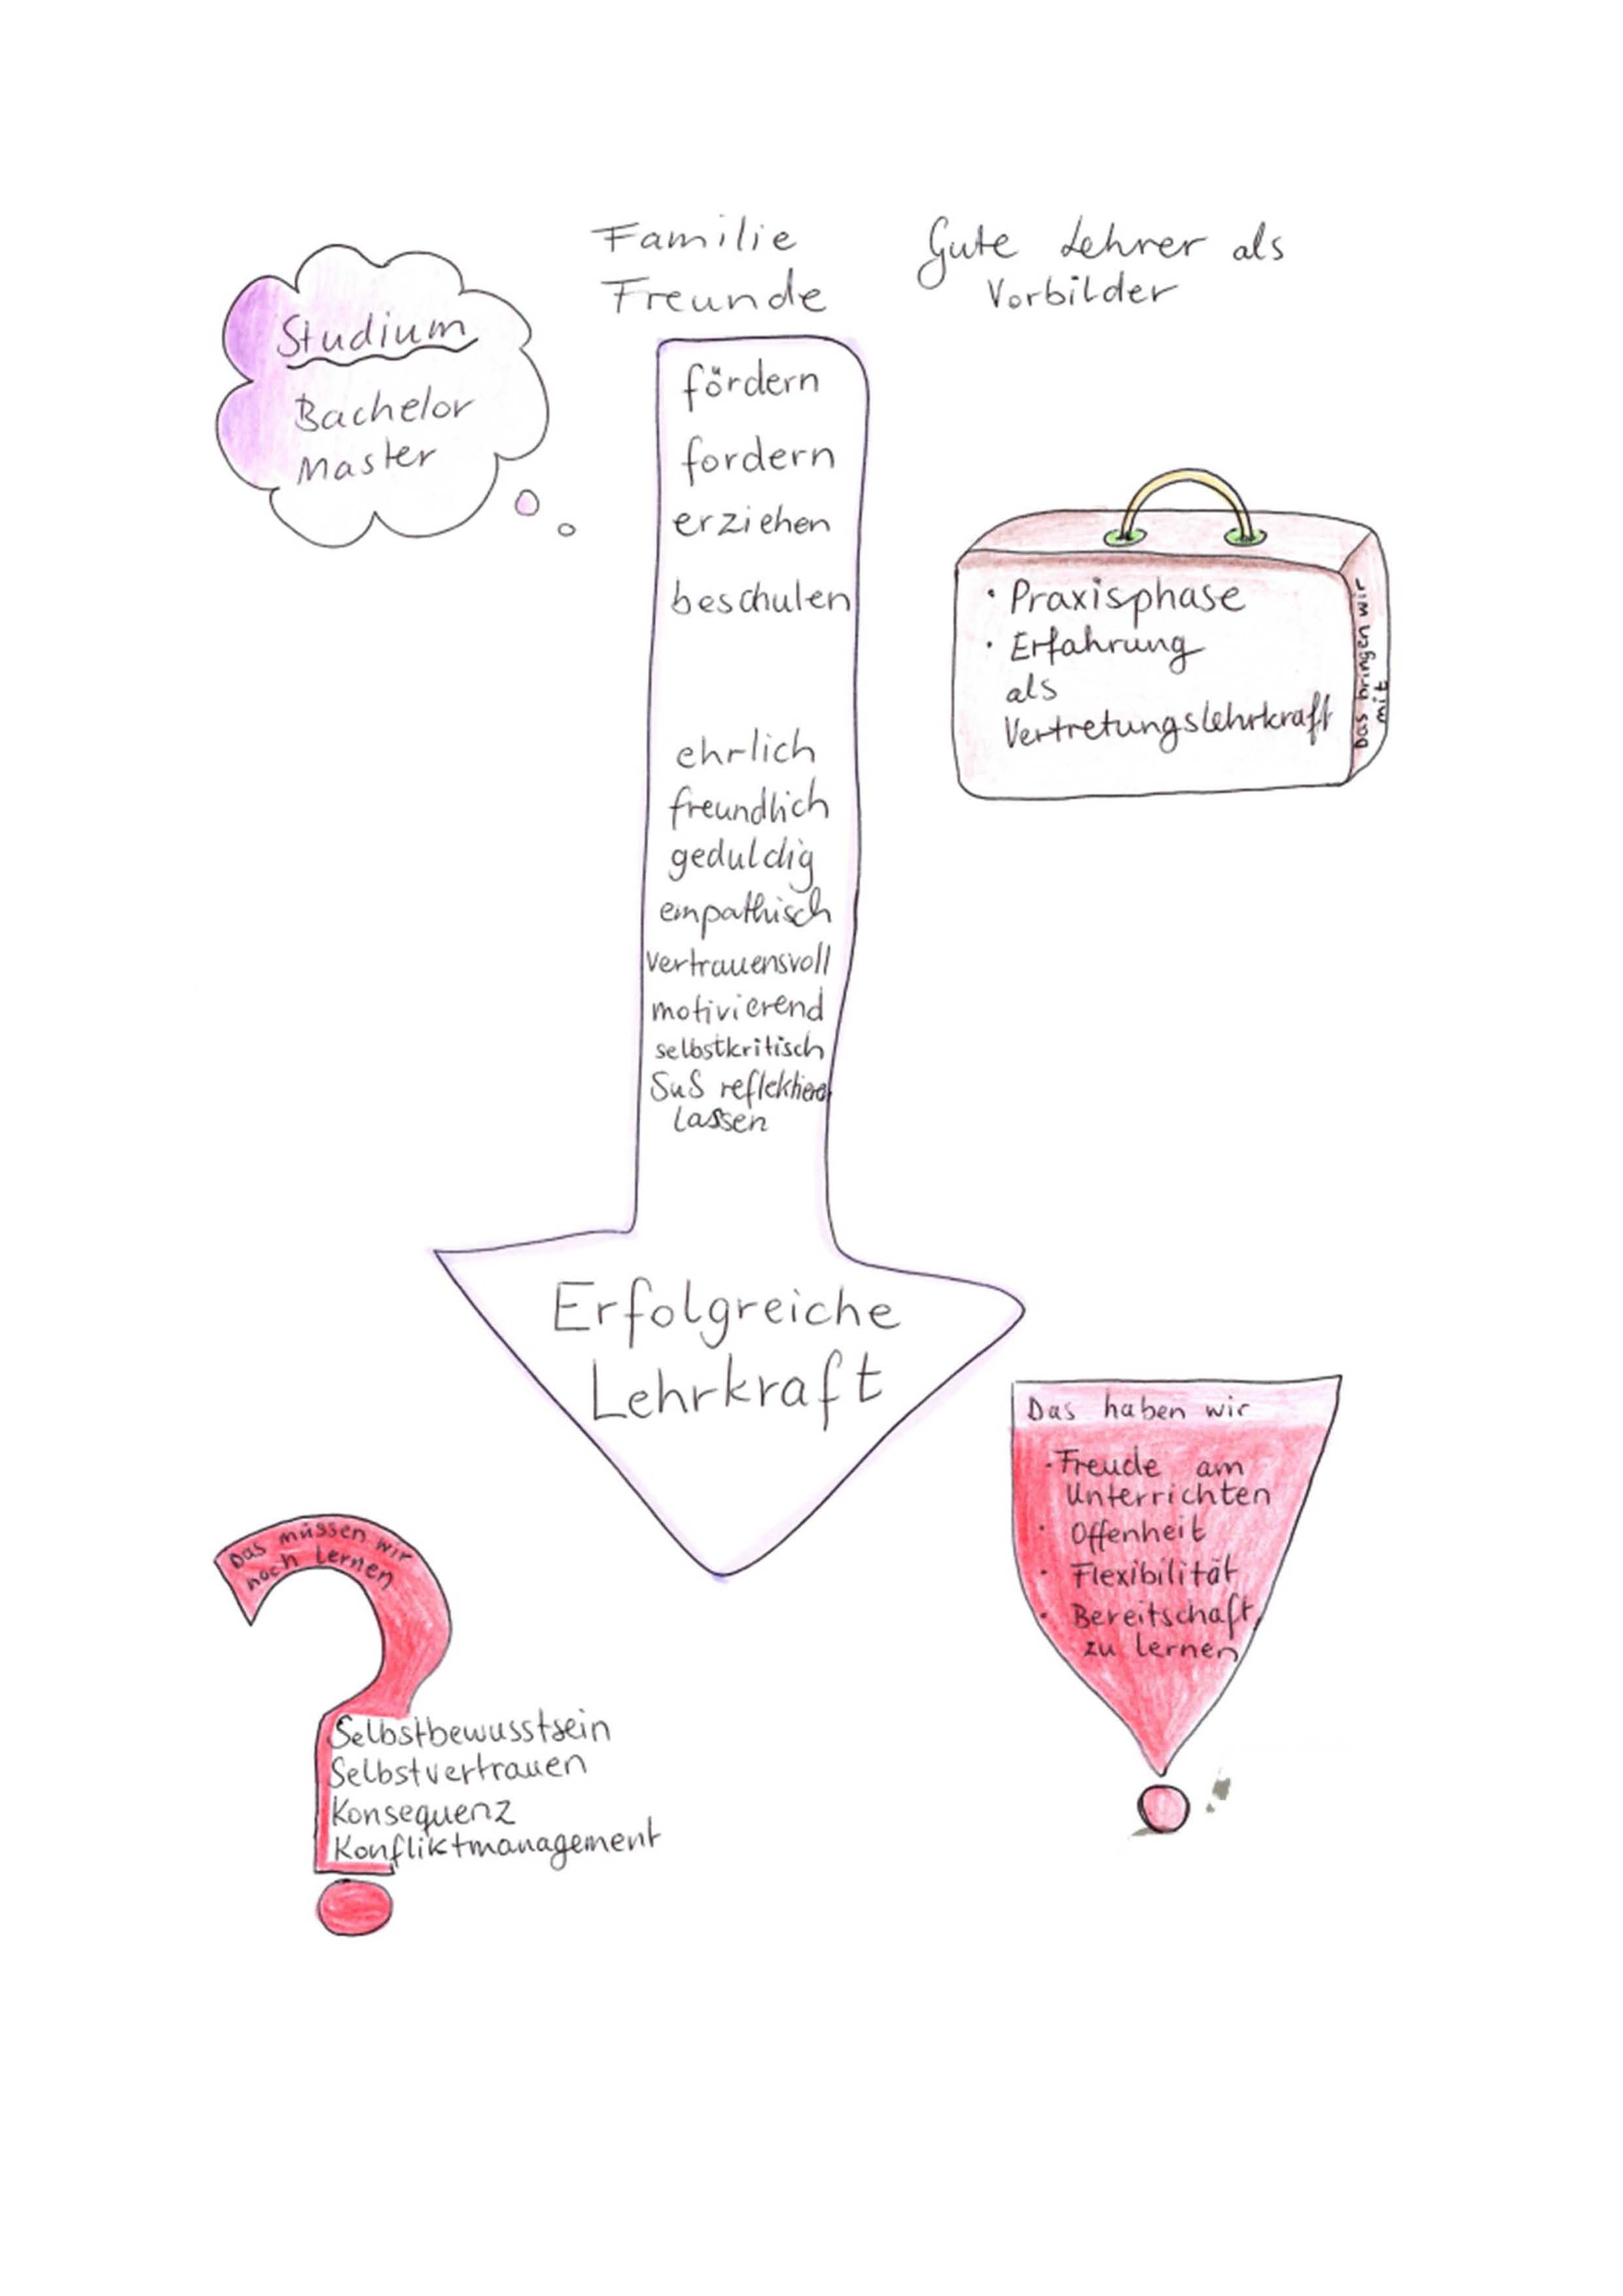 Familie
Freunde
Gute Lehrer als
Vorbilder
Studium
Bachelor
Master
fördern
fordern
erziehen
beschulen
ehrlich
freundlich
geduldig
empathisch
vertrauensvoll
motivierend
selbstkritisch
SuS reflektieren
lassen
Erfolgreiche
Lehrkraft
• Praxisphase
• Erfahrung
als
Vertretungslehrkraft
Das bringen wir
mit
Das haben wir
• Freude am
Unterrichten
• Offenheit
• Flexibilität
• Bereitschaft
zu lernen
Das müssen wir
noch lernen
Selbstbewusstsein
Selbstvertrauen
Konsequenz
Konfliktmanagement